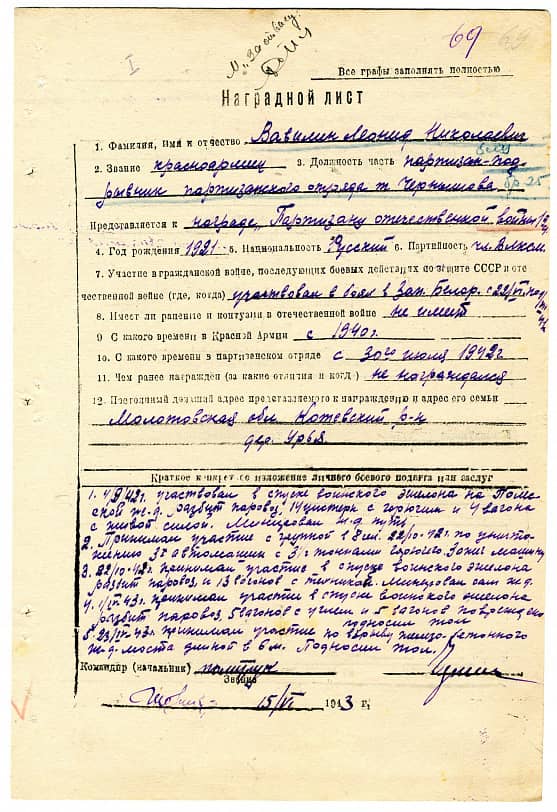 69
I
Все графы заполнять полностью
Наградной лист
1. Фамилия, имя и отчество Вавилин Леонид Николаевич
2. Звание красноармеец 3. Должность часть партизан-под-
рывник партизанского отряда т. Чернышова
Представляется к награде „Партизану отечественной войны
4. Год рождения 1921 5. Национальность Русский 6. Партийность чл. Влксм.
7. Участие в гражданской войне, последующих боевых действиях по защите СССР и оте
чественной войне (где, когда) участвовал в боях в Зап. Белор. с 22/VI
8. Имеет ли ранение и контузии в отечественной войне не имеет
9 С какого времени в Красной Армии с 1940г.
10. С какого времени в партизанском отряде с 30го июля 1942г
11. Чем ранее награжден (за какие отличия и когд ) не награждался
12. Постоянный домашний адрес представляемого к награждению и адрес его семьи
Молотовская обл. р-н
дер. Урья
Краткое конкретное изложение личного боевого подвига или заслуг
1. 4/9 42г. участвовал в спуске воинского эшелона на
ж.д. разбит паровоз, 14 цистерн с горючим и 4 вагона
с живой силой. Минировал ж.д. путь
2. Принимал участие с группой в 8 чел. 22/10-42г. по уничто-
жению 3х автомашин с 3/2 тоннами горючего. Зажег машину
3. 22/10-42г. принимал участие в спуске воинского эшелона
разбит паровоз и 13 вагонов с техникой. Минировал сам ж.д.
4. 1/IV-43г. принимал участие в спуске воинского эшелона
разбит паровоз, 5 вагонов с углем и 5 вагонов повреждено
подносил тол
5. 23/IV-43г. принимал участие по взрыву железо-бетонного
ж-д. моста длиной в 6 м. Подносил тол.
Командир (начальник)
Звание
15/VI 1943 г.